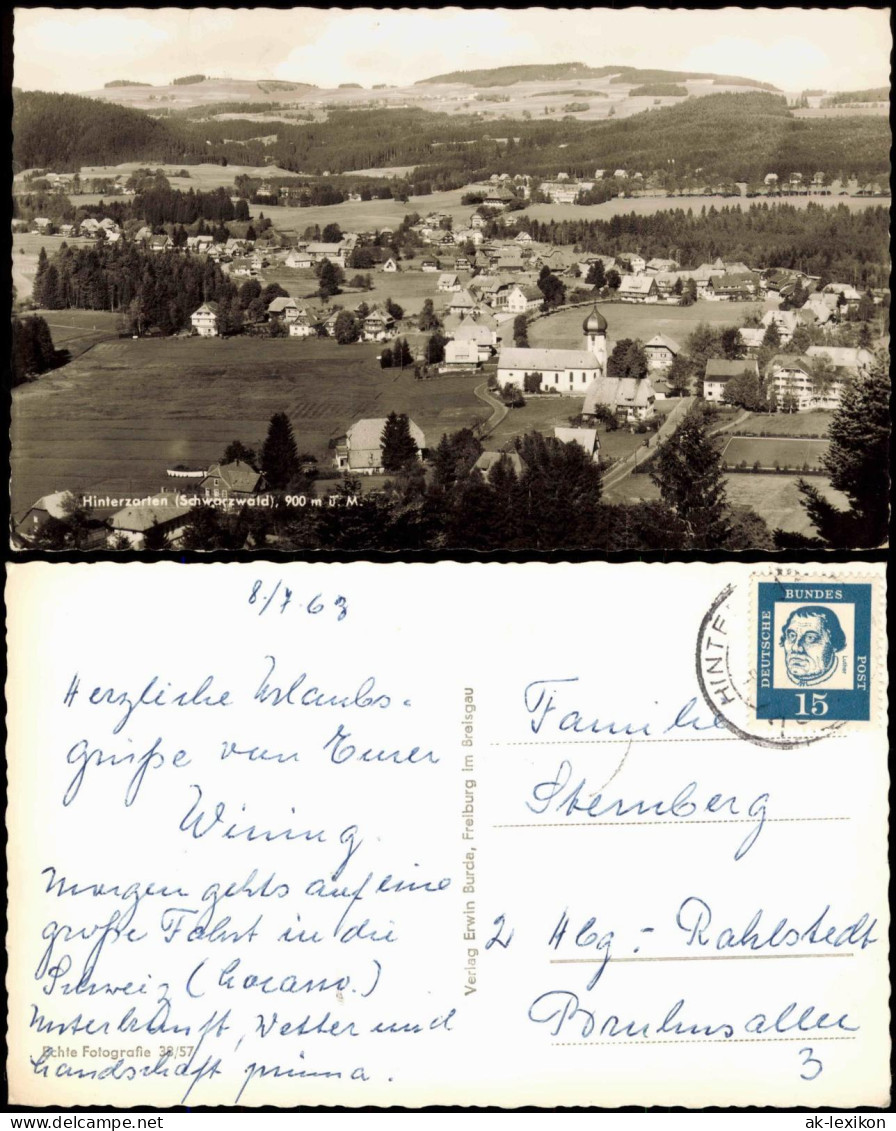 Hinterzarten (Schwarzwald), 900 m ü. M.
8/7.63
Herzliche Urlaubs-
grüße von Eurer
Morgen gehts auf eine
große Fahrt in die
Schweiz (Locarno.)
Unterkunft, Wetter und
Landschaft prima.
Echte Fotografie 38/57
Verlag Erwin Burda, Freiburg im Breisgau
HINTE
DEUTSCHE
BUNDES
POST
Luther
15
Familie
Sternberg
2 Hbg.- Rahlstedt
Bruhnsallee
3
© ak-lexikon